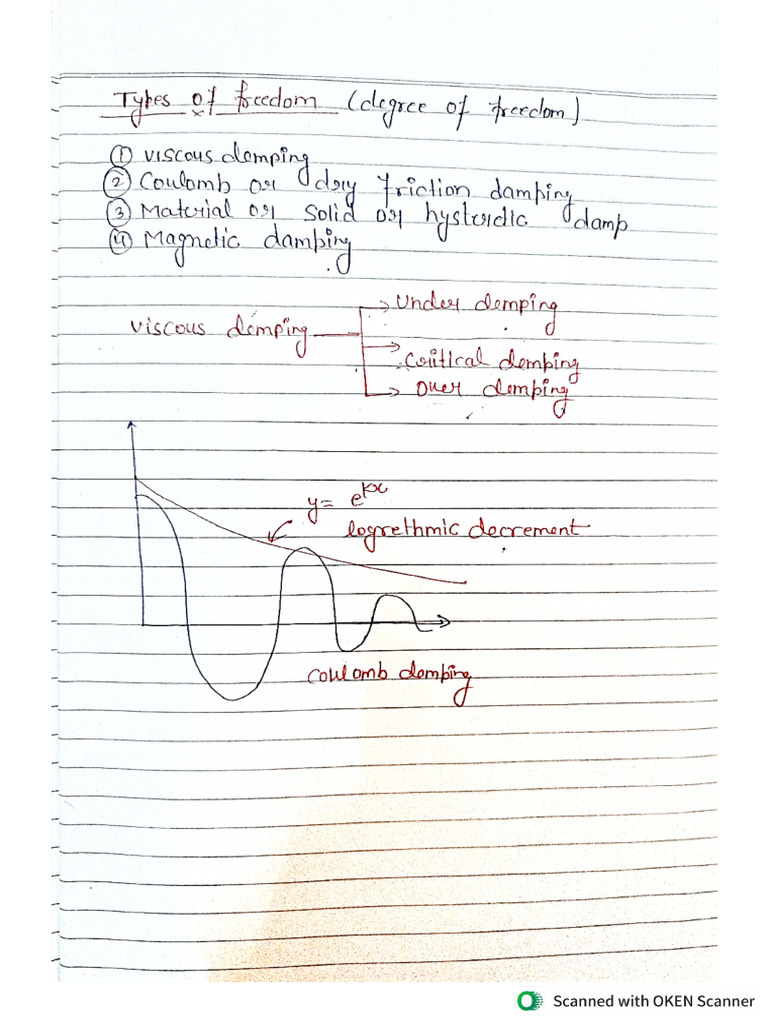 Types of freedom (degree of freedom)
① viscous demping
② Coulomb or dry friction damping
③ Material or solid or hysterdic damp
④ Magnetic damping
viscous demping
Under demping
Critical demping
Over demping
y = e^kx
logrethmic decrement
Coulomb demping
Scanned with OKEN Scanner